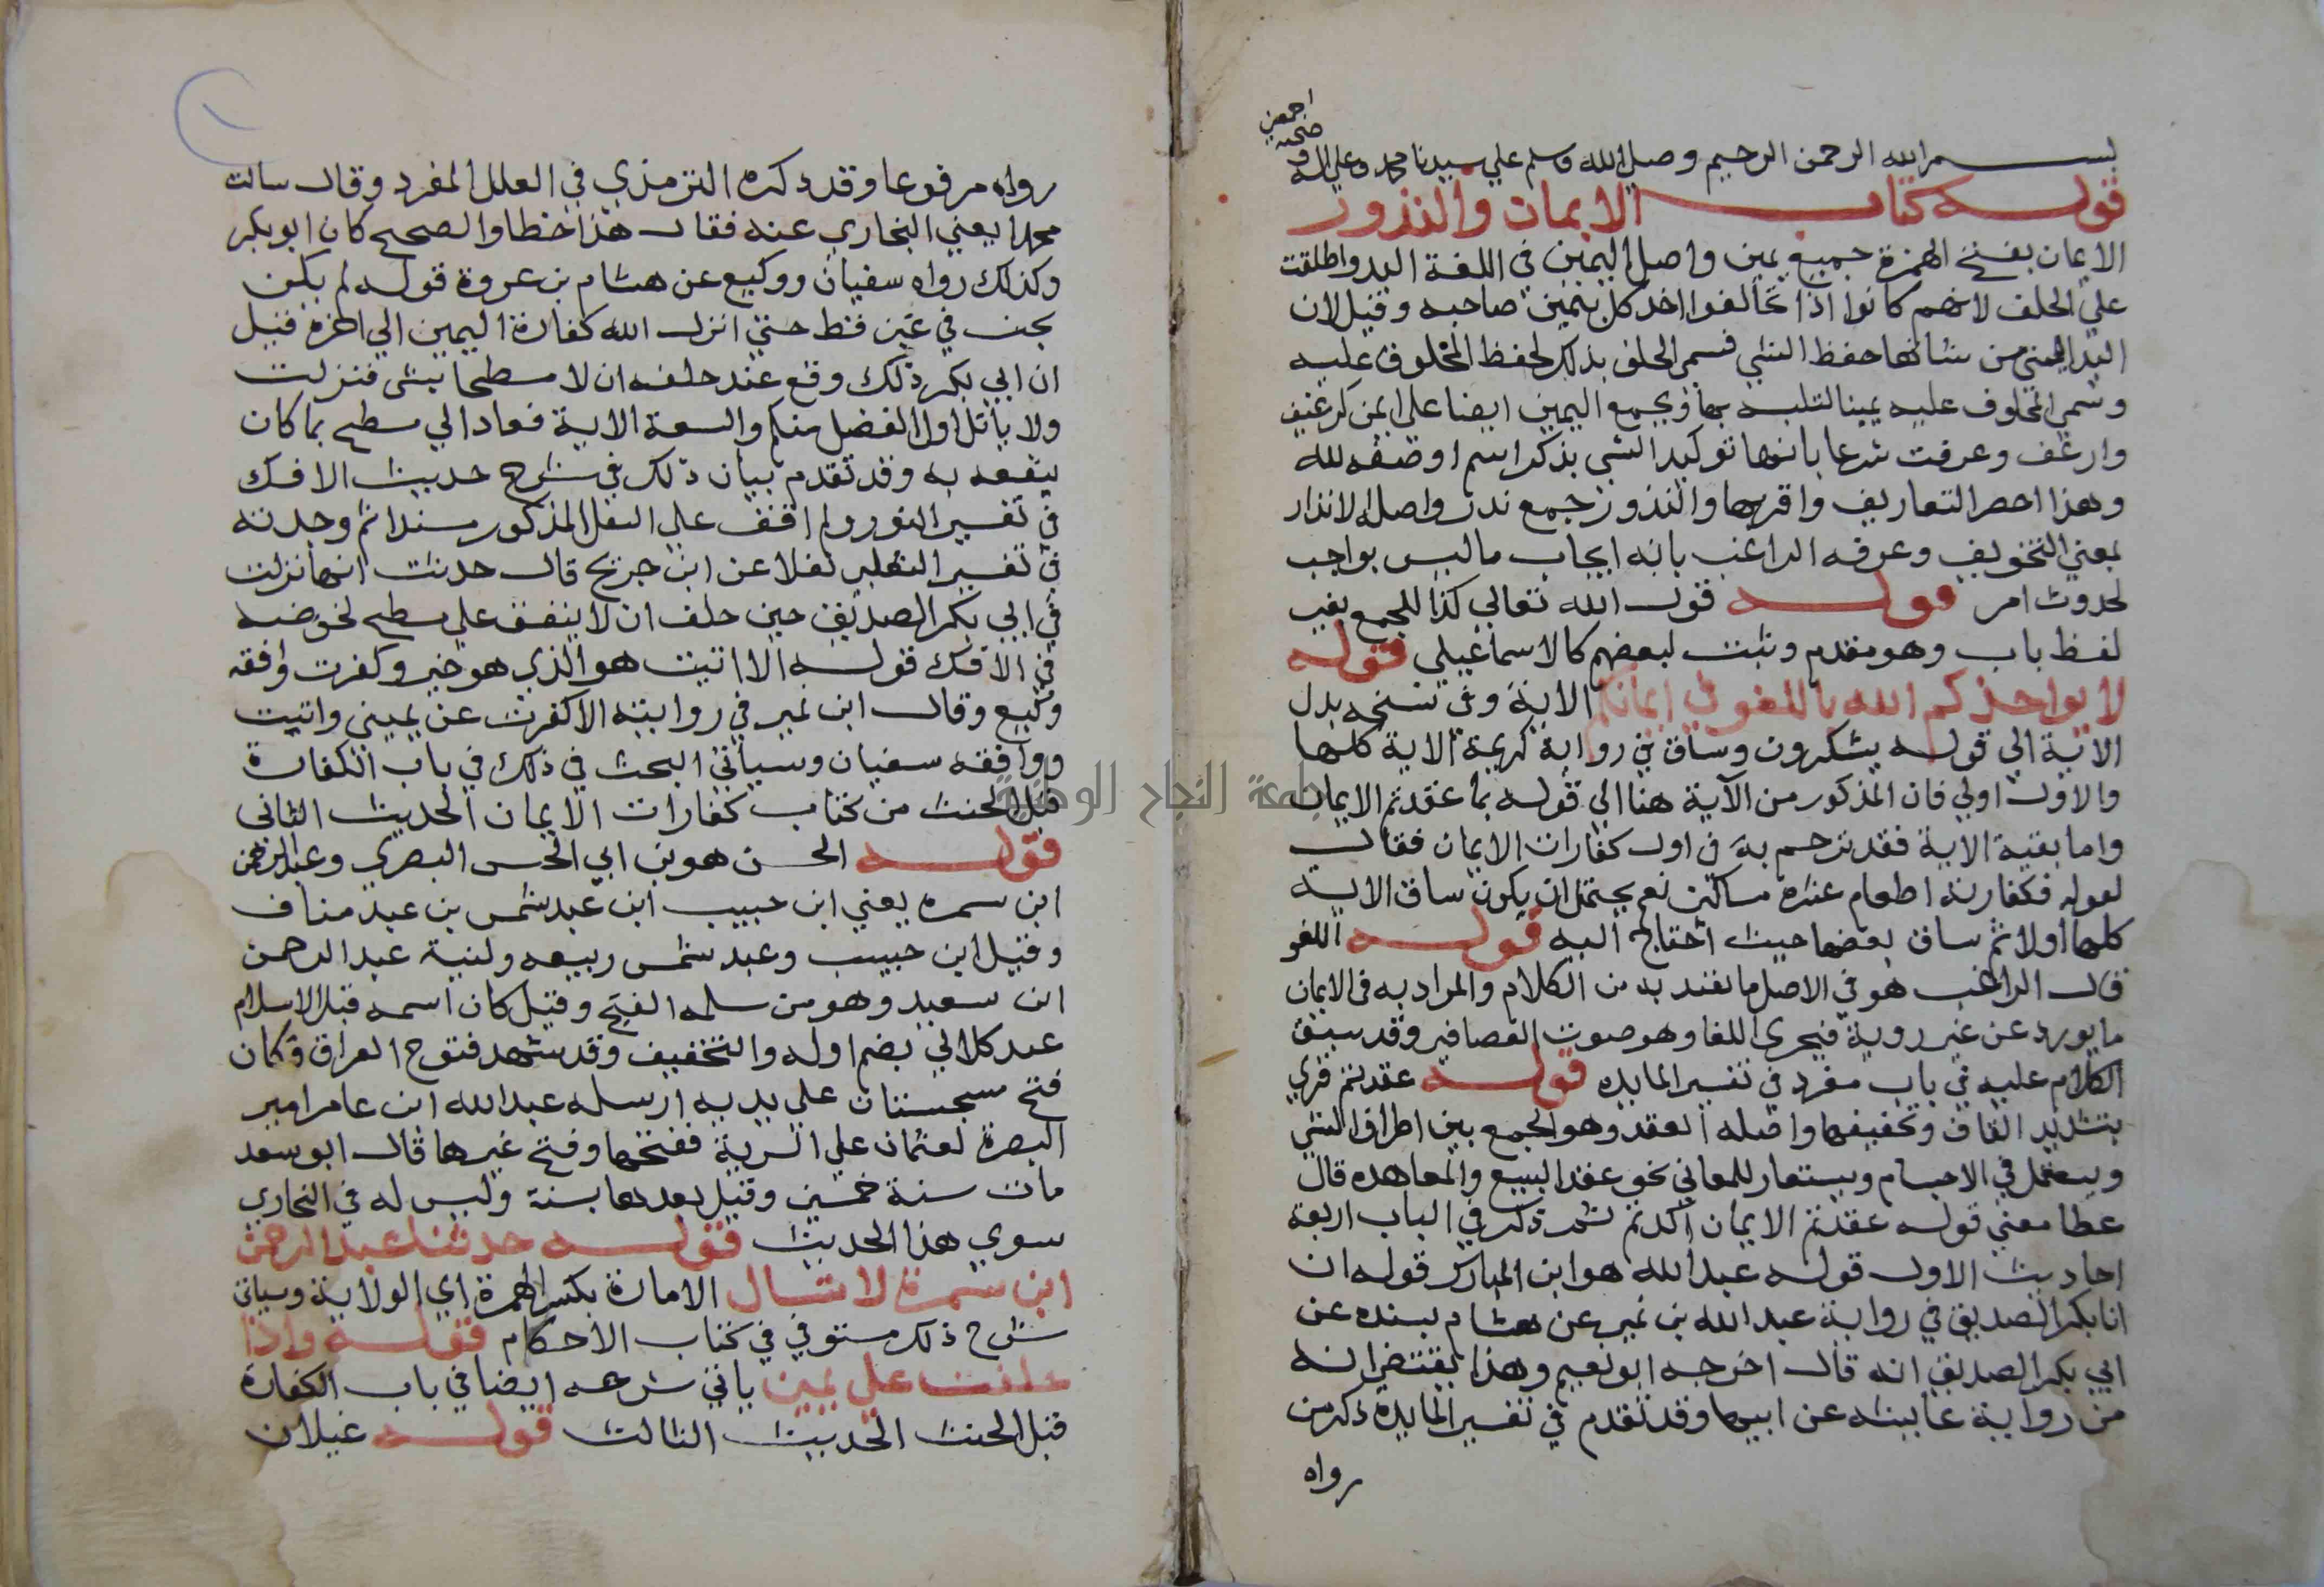 بسم الله الرحمن الرحيم وصلى الله وسلم علي سيدنا محمد وعلي اله وصحبه اجمعين
قوله كتاب الايمان والنذور
الايمان بفتح الهمزة جميع يمين واصل اليمين في اللغة اليد واطلقت
علي الحلف لانهم كانوا اذا تحالفوا اخذ كل بيمين صاحبه وقيل لان
اليد اليمني من شانها حفظ الشي فسمي الحلف بذلك لحفظ المحلوف عليه
وسمي المحلوف عليه يمينا لتلبسه بها ويجمع اليمين ايضا علي ايمن كرغيف
وارغف وعرفت شرعا بانها توكيد الشي بذكر اسم او صفة لله
وهذا احصر التعاريف واقربها والنذور جمع نذر واصله الانذار
بمعني التخويف وعرفه الراغب بانه ايجاب ما ليس بواجب
لحدوث امر قوله قول الله تعالي كذا للجمع بغير
لفظ باب وهو مقدم وثبت لبعضهم كالاسماعيلي قوله
لا يواخذكم الله باللغو في ايمانكم الاية وفي نسخه بدل
الاية الي قوله يشكرون وساق في رواية كريمة الاية كلها
والاول اولي فان المذكور من الآية هنا الي قوله بما عقدتم الايمان
واما بقية الاية فقد ترجم به في اول كفارات الايمان فقال
لقوله فكفارته اطعام عشرة مساكين نعم يحتمل ان يكون ساق الاية
كلها اولا ثم ساق بعضها حيث احتاج اليه قوله اللغو
قال الراغب هو في الاصل ما لا يعتد به من الكلام والمراد به في الايمان
ما يورد عن غير روية فيجري اللغا وهو صوت العصافير وقد سبق
الكلام عليه في باب مفرد في تفسير المايده قوله عقدتم قري
بتشديد القاف وتخفيفها واصله العقد وهو الجمع بين اطراف الشي
ويستعمل في الاجسام ويستعار للمعاني نحو عقد البيع والمعاهده قال
عطا معني قوله عقدتم الايمان اكدتم ثم ذكر في الباب اربعة
احاديث الاول قوله عبد الله هو ابن المبارك قوله ان
ابا بكر الصديق في رواية عبد الله بن نمير عن هشام بسنده عن
ابي بكر الصديق انه قال اخرجه ابو نعيم وهذا يقتضي انه
من رواية عايشه عن ابيها وقد تقدم في تفسير المايده ذكر من
رواه
رواه مرفوعا وقد ذكره الترمذي في العلل المفرد وقال سالت
محمدا يعني البخاري عنه فقال هذا خطا والصحيح كان ابو بكر
وكذلك رواه سفيان ووكيع عن هشام بن عروة قوله لم يكن
يحنث في يمين قط حتي انزل الله كفارة اليمين الي اخره قيل
ان ابي بكر ذلك وقع عند حلفه ان لا مسطحا بشي فنزلت
ولا ياتل اولوا الفضل منكم والسعة الاية فعاد الي مسطح بما كان
ينفعه به وقد تقدم بيان ذلك في شرح حديث الافك
في تفسير النور ولم اقف علي النقل المذكور مسندا ثم وجدته
في تفسير الثعلبي نقلا عن ابن جريج قال حدثت انها نزلت
في ابي بكر الصديق حين حلف ان لا ينفق علي مسطح لخوضه
في الافك قوله الا اتيت هو الذي هو خير وكفرت وافقه
وكيع وقال ابن نمير في روايته الا كفرت عن يميني واتيت
ووافقه سفيان وسياتي البحث في ذلك في باب الكفارة
قبل الحنث من كتاب كفارات الايمان الحديث الثاني
قوله الحسن هو بن ابي الحسن البصري وعبد الرحمن
ابن سمره يعني ابن حبيب ابن عبد شمس بن عبد مناف
وقيل ابن حبيب وعبد شمس ربيعه وكنية عبد الرحمن
ابن سعيد وهو من سلمه الفتح وقيل كان اسمه قبل الاسلام
عبد كلال بضم اوله والتخفيف وقد شهد فتوح العراق وكان
فتح سجستان علي يديه ارسله عبد الله ابن عامر امير
البصرة لعثمان علي السرية ففتحها وفتح غيرها قال ابو سعد
مات سنة خمسين وقيل بعدها بسنة وليس له في البخاري
سوي هذا الحديث قوله حدثنا عبد الرحمن
ابن سمرة لا تسال الامارة بكسر الهمزة اي الولاية وسياتي
شرح ذلك مستوفي في كتاب الاحكام قوله واذا
حلفت علي يمين ياتي شرحه ايضا في باب الكفارة
قبل الحنث الحديث الثالث قوله غيلان
جامعة النجاح الوطنية